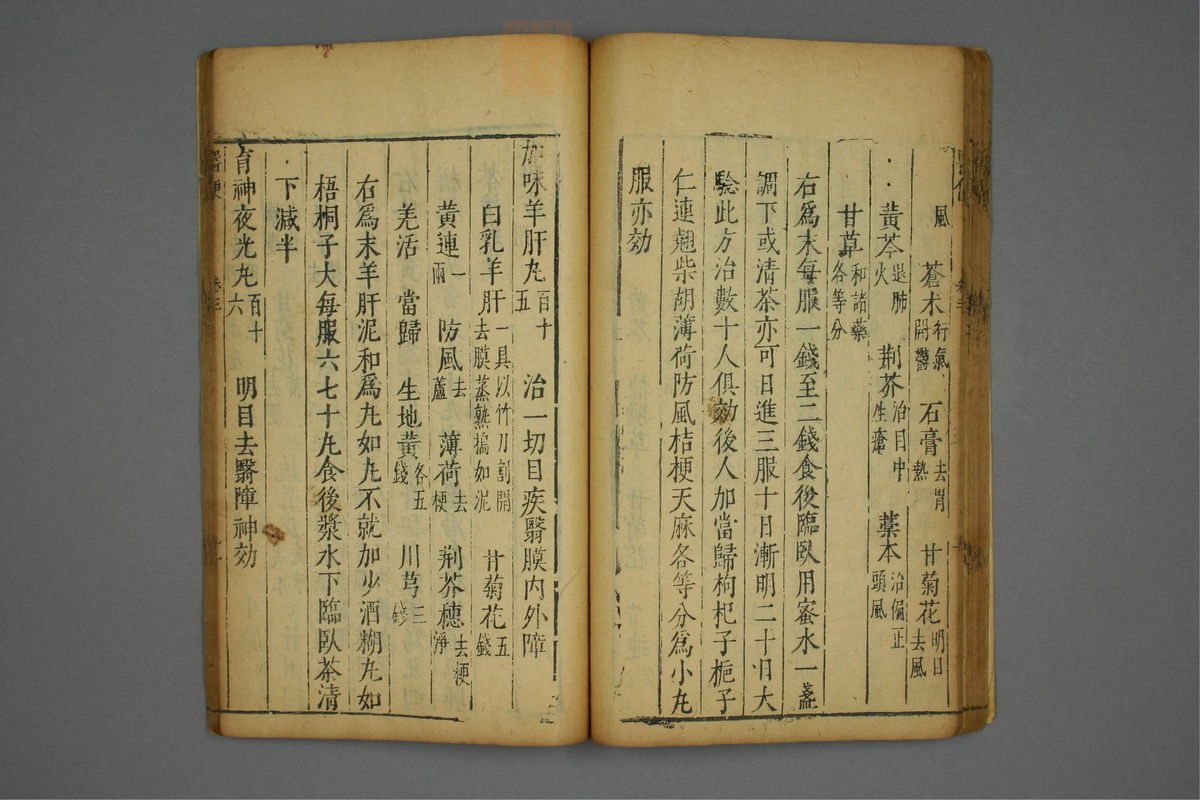 風 蒼朮行氣開鬱 石膏去胃熱 甘菊花明目去風
黃芩退肺火 荆芥治目中生瘡 藁本治偏正頭風
甘草和諸藥各等分
右爲末每服一錢至二錢食後臨臥用蜜水一盞
調下或清茶亦可日進三服十日漸明二十日大
驗此方治數十人俱効後人加當歸枸杞子梔子
仁連翹柴胡薄荷防風桔梗天麻各等分爲小丸
服亦効
加味羊肝丸百十五 治一切目疾翳膜内外障
白乳羊肝一具以竹刀割開去膜蒸熟搗如泥 甘菊花五錢
黃連一兩 防風去蘆 薄荷去梗 荆芥穗去梗淨
羌活 當歸 生地黃各五錢 川芎三錢
右爲末羊肝泥和爲丸如丸不就加少酒糊丸如
梧桐子大每服六七十丸食後漿水下臨臥茶清
下減半
育神夜光丸百十六 明目去翳障神効
卷三